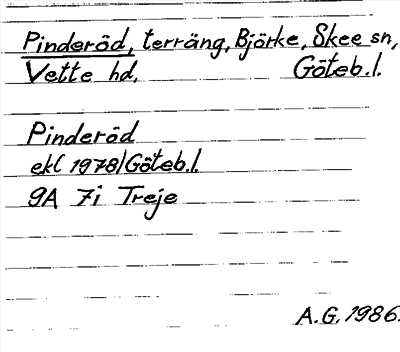 Pinderöd, terräng, Björke, Skee sn,
Vette hd, Göteb.l.
Pinderöd
ekl 1978/Göteb.l.
9A 7i Treje
A.G. 1986.